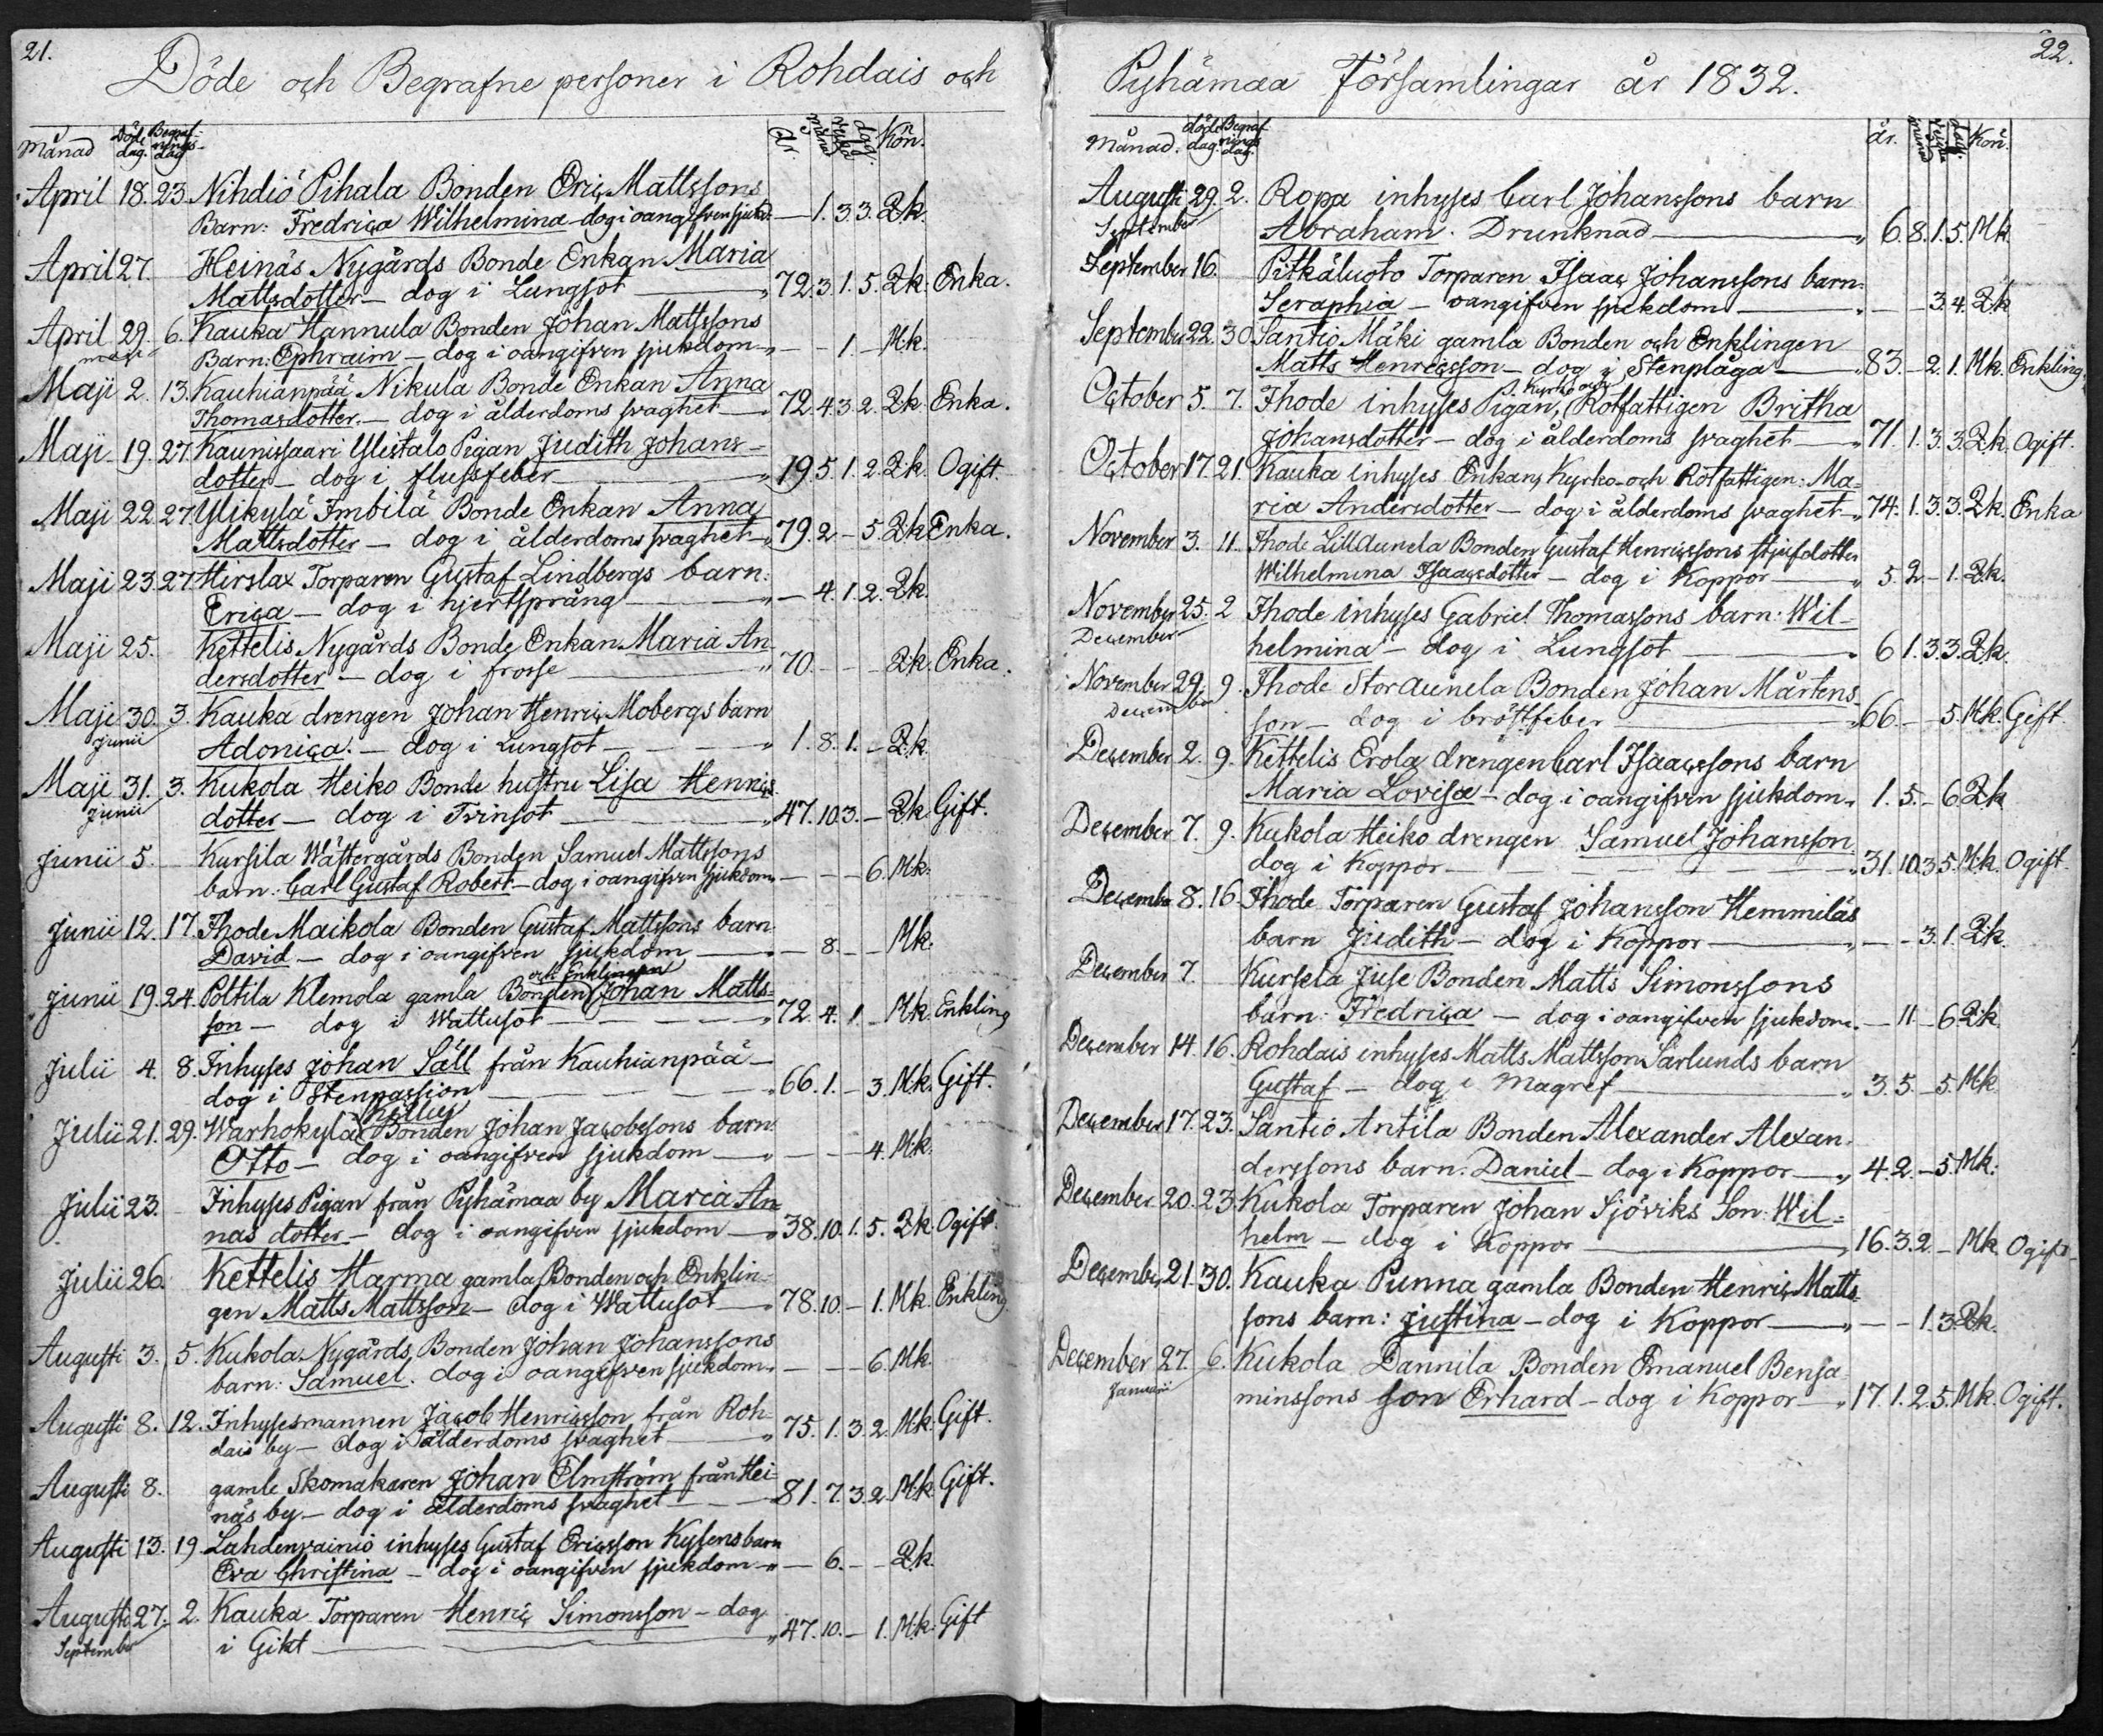 21.
Döde och Begrafne personer i Rohdais och
Månad Döde dag. Begrafnings dag år. månad vecka dag. Kön.
April 18. 23. Nihdiö Pihala Bonden Eric Mattssons
Barn: Fredrica Wilhelmina dog i oangifven sjukd. — 1. 3. 3. Qk.
April 27. Heinäs Nygårds Bonde Enkan Maria
Mattsdotter — dog i Lungsot — „ 72. 3. 1. 5. Qk. Enka.
April 29. 6. Kauka Hannula Bonden Johan Mattssons
maji Barn: Ephraim — dog i oangifven sjukdom „ — — 1. — Mk.
Maji 2. 13. Kauhianpää Nikula Bonde Enkan Anna
Thomasdotter. — dog i ålderdoms svaghet — „ 72. 4. 3. 2. Qk. Enka.
Maji 19. 27. Kaunissaari Ylistalo Pigan Judith Johans-
dotter — dog i flussfeber — „ 19. 5. 1. 2. Qk. Ogift.
Maji 22. 27. Ylikylä Imbilä Bonde Enkan Anna
Mattsdotter — dog i ålderdoms svaghet — „ 79. 2 — 5. Qk Enka.
Maji 23. 27. Hirslax Torparen Gustaf Lindbergs barn:
Erica — dog i hjertsprång — „ — 4. 1. 2. Qk.
Maji 25. Kettelis Nygårds Bonde Enkan Maria An
dersdotter — dog i frosse — „ 70. — — — Qk. Enka.
Maji 30. 3. Kauka drengen Johan Henric Mobergs barn
Junii Adonica. — dog i Lungsot — „ 1. 8. 1. — Qk.
Maji 31. 3. Kukola Heiko Bonde hustru Lisa Henrics
Junii dotter — dog i Tvinsot — „ 47. 10. 3. — Qk. Gift.
Junii 5. Kursila Wästergårds Bonden Samuel Mattssons
barn: Carl Gustaf Robert — dog i oangifven sjukdom — — — 6. Mk.
Junii 12. 17. Ihode Maikola Bonden Gustaf Mattssons barn
David — dog i oangifven sjukdom — „ — 8. — — Mk.
och Enklingen
Junii 19. 24. Poltila Klemola gamla Bonden Johan Matts=
son — dog i Wattusot — „ 72. 4. 1. — Mk. Enkling
Julii 4. 8. Inhyses Johan Säll från Kauhianpää —
dog i Stenpassion — „ 66. 1. — 3. Mk. Gift.
Julii 21. 29. Warhokylä Bonden Johan Jacobssons barn
Otto — dog i oangifven sjukdom — „ — — — 4. Mk.
Julii 23. Inhyses Pigan från Pyhämaa by Maria An=
nas dotter — dog i oangifven sjukdom — „ 38. 10. 1. 5. Qk Ogift.
Julii 26. Kettelis Harma gamla Bonden och Enklin=
gen Matts Mattsson — dog i Wattusot — „ 78. 10. — 1. Mk. Enkling
Augusti 3. 5. Kukola Nygårds Bonden Johan Johanssons
barn: Samuel. dog i oangifven sjukdom „ — — — 6. Mk.
Augusti 8. 12. Inhysesmannen Jacob Henricsson från Roh=
dais by — dog i ålderdoms svaghet — „ 75. 1. 3. 2. Mk. Gift.
Augusti 8. gamle Skomakaren Johan Elmström från Hei=
näs by — dog i ålderdoms svaghet — 81. 7. 3. 2. Mk. Gift.
Augusti 13. 19. Lahdenvainiö inhyses Gustaf Ericsson Kysens barn
Eva Christina — dog i oangifven sjukdom „ — 6. — — Qk.
Augusti 27. 2. Kauka Torparen Henric Simonsson — dog
September i Gikt — „ 47. 10. — 1. Mk. Gift
22.
Pyhämaa Församlingar år 1832.
Månad. döde dag. Begrafnings dag. år. månad vecka dag. Kön.
Augusti 29. 2. Ropa inhyses Carl Johanssons barn
September Abraham. Drunknad — „ 6. 8. 1. 5. Mk.
September 16. Pitkäluoto Torparen Isaac Johanssons barn:
Seraphia — oangifven sjukdom — „ — — 3. 4. Qk
September 22. 30. Santio Mäki gamla Bonden och Enklingen
Matts Henricsson — dog i Stenplåga — „ 83. — 2. 1. Mk. Enkling.
Kyrko och
October 5. 7. Ihode inhyses Pigan, Rotfattigen Britha
Johansdotter — dog i ålderdoms svaghet — „ 71. 1. 3. 3. Qk. Ogift.
October 17. 21. Kauka inhyses Enkan, Kyrko- och Rotfattigen: Ma=
ria Andersdotter — dog i ålderdoms svaghet — „ 74. 1. 3. 3. Qk. Enka
November 3. 11. Ihode Lillaunela Bonden Gustaf Henricssons stjufdotter
Wilhelmina Isaacsdotter — dog i Koppor — „ 5. 2 — 1. Qk.
November 25. 2 Ihode inhyses Gabriel Thomassons barn: Wil=
December helmina — dog i Lungsot — „ 6 1. 3. 3. Qk.
November 29. 9. Ihode Storaunela Bonden Johan Mårtens
December son — dog i bröstfeber — „ 66. — — 5. Mk. Gift
December 2. 9. Kettelis Erola drengen Carl Isaacssons barn
Maria Lovisa — dog i oangifven sjukdom „ 1. 5. — 6 Qk
December 7. 9. Kukola Heiko drengen Samuel Johansson
dog i Koppor — „ 31. 10. 3. 5. Mk. Ogift.
December 8. 16. Ihode Torparen Gustaf Johansson Hemmiläs
barn Judith — dog i Koppor — „ — — 3. 1. Qk.
December 7. Kursela Juse Bonden Matts Simonssons
barn: Fredrica — dog i oangifven sjukdom. — 11 — 6 Qk.
December 14. 16. Rohdais inhyses Matts Mattsson Särlunds barn
Gustaf — dog i Magref — „ 3. 5. — 5. Mk
December 17. 23. Santio Antila Bonden Alexander Alexan-
derssons barn. Daniel — dog i Koppor — „ 4. 2. — 5. Mk.
December 20. 23. Kukola Torparen Johan Sjöviks Son Wil=
helm — dog i Koppor — „ 16. 3. 2 — Mk. Ogift
December 21. 30. Kauka Punna gamla Bonden Henric Matts
sons barn: Justina — dog i Koppor — „ — — 1. 3. Qk.
December 27. 6. Kukola Dannila Bonden Emanuel Benja
Januarii minssons son Erhard — dog i Koppor — „ 17. 1. 2. 5. Mk. Ogift.